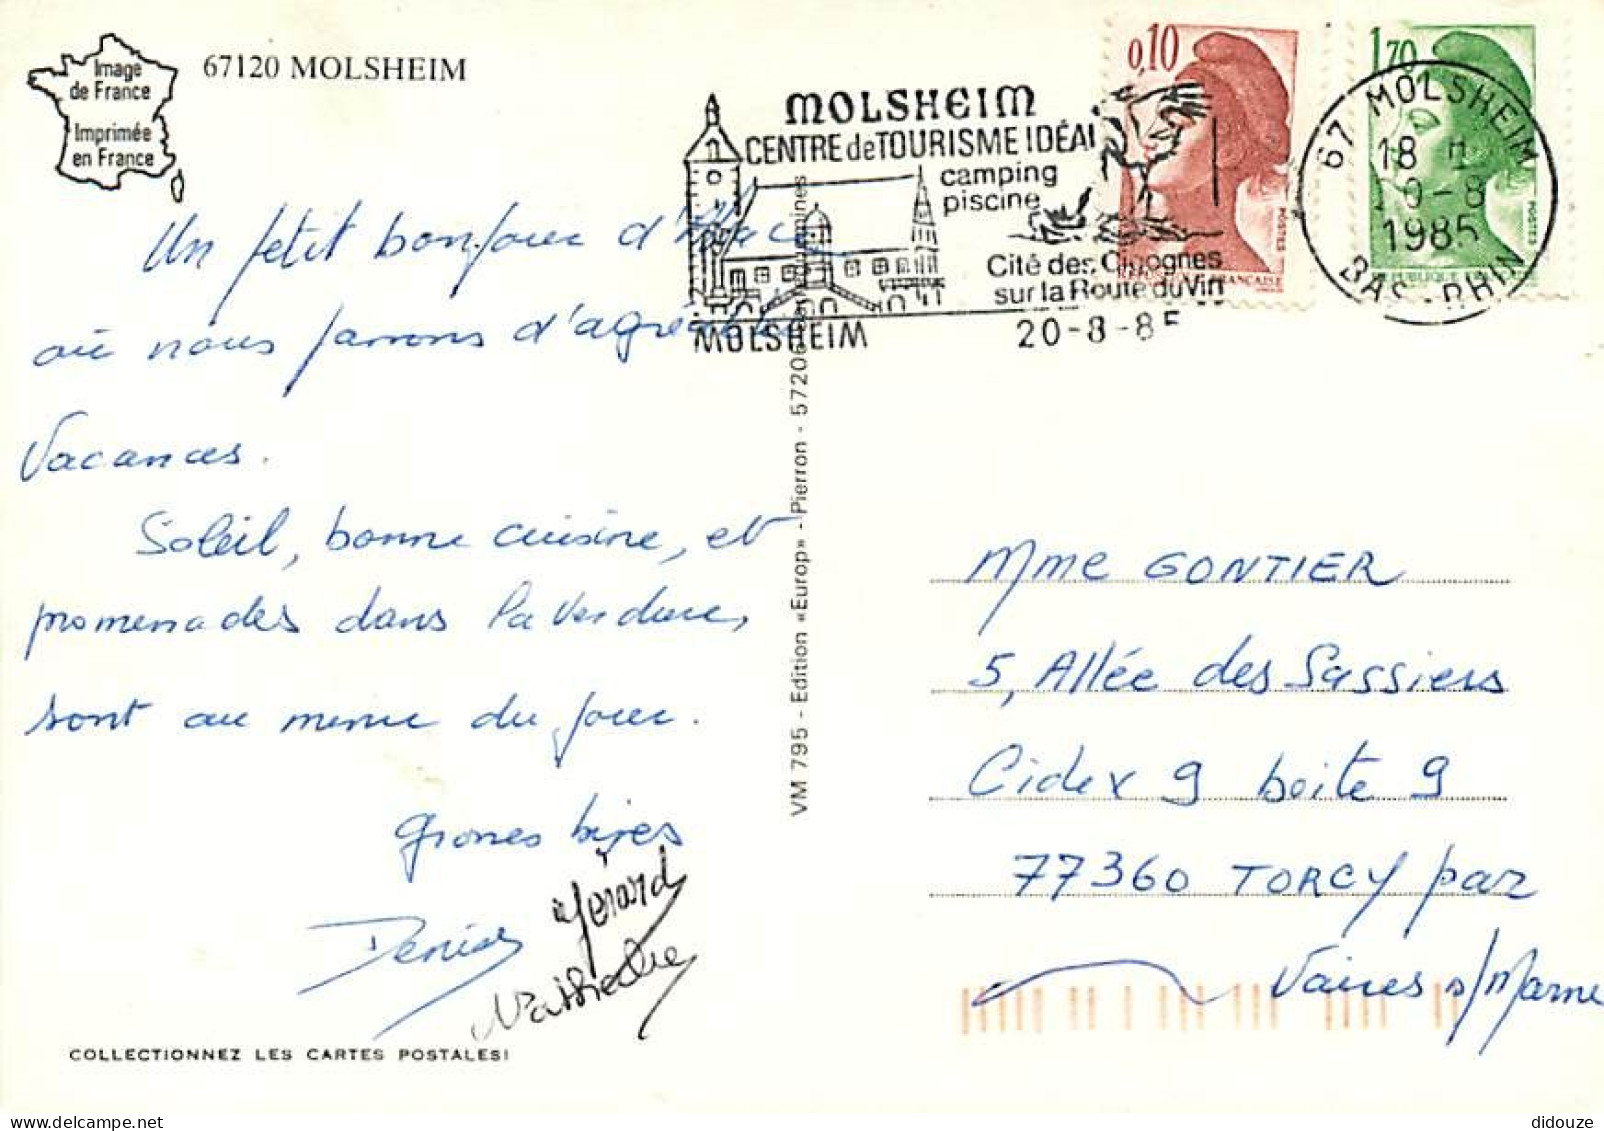 Image
de France
Imprimée
en France
67120 MOLSHEIM
MOLSHEIM
CENTRE de TOURISME IDÉAL
camping
piscine
Cité des Cigognes
sur la Route du Vin
MOLSHEIM
20-8-85
0,10
POSTES
FRANÇAISE
1,70
POSTES
67 MOLSHEIM
18 H
20-8
1985
BAS-RHIN
Un petit bonjour d'Alsace
où nous passons d'agréables
Vacances.
Soleil, bonne cuisine, et
promenades dans la verdure,
sont au menu du jour.
Grosses bises
Denise
Gérard
Nathalie
COLLECTIONNEZ LES CARTES POSTALES!
VM 795 - Edition «Europ» - Pierron - 57206
Mme GONTIER
5, Allée des Sassiers
Cidex 9 boite 9
77360 TORCY par
Vaires s/Marne
didouze